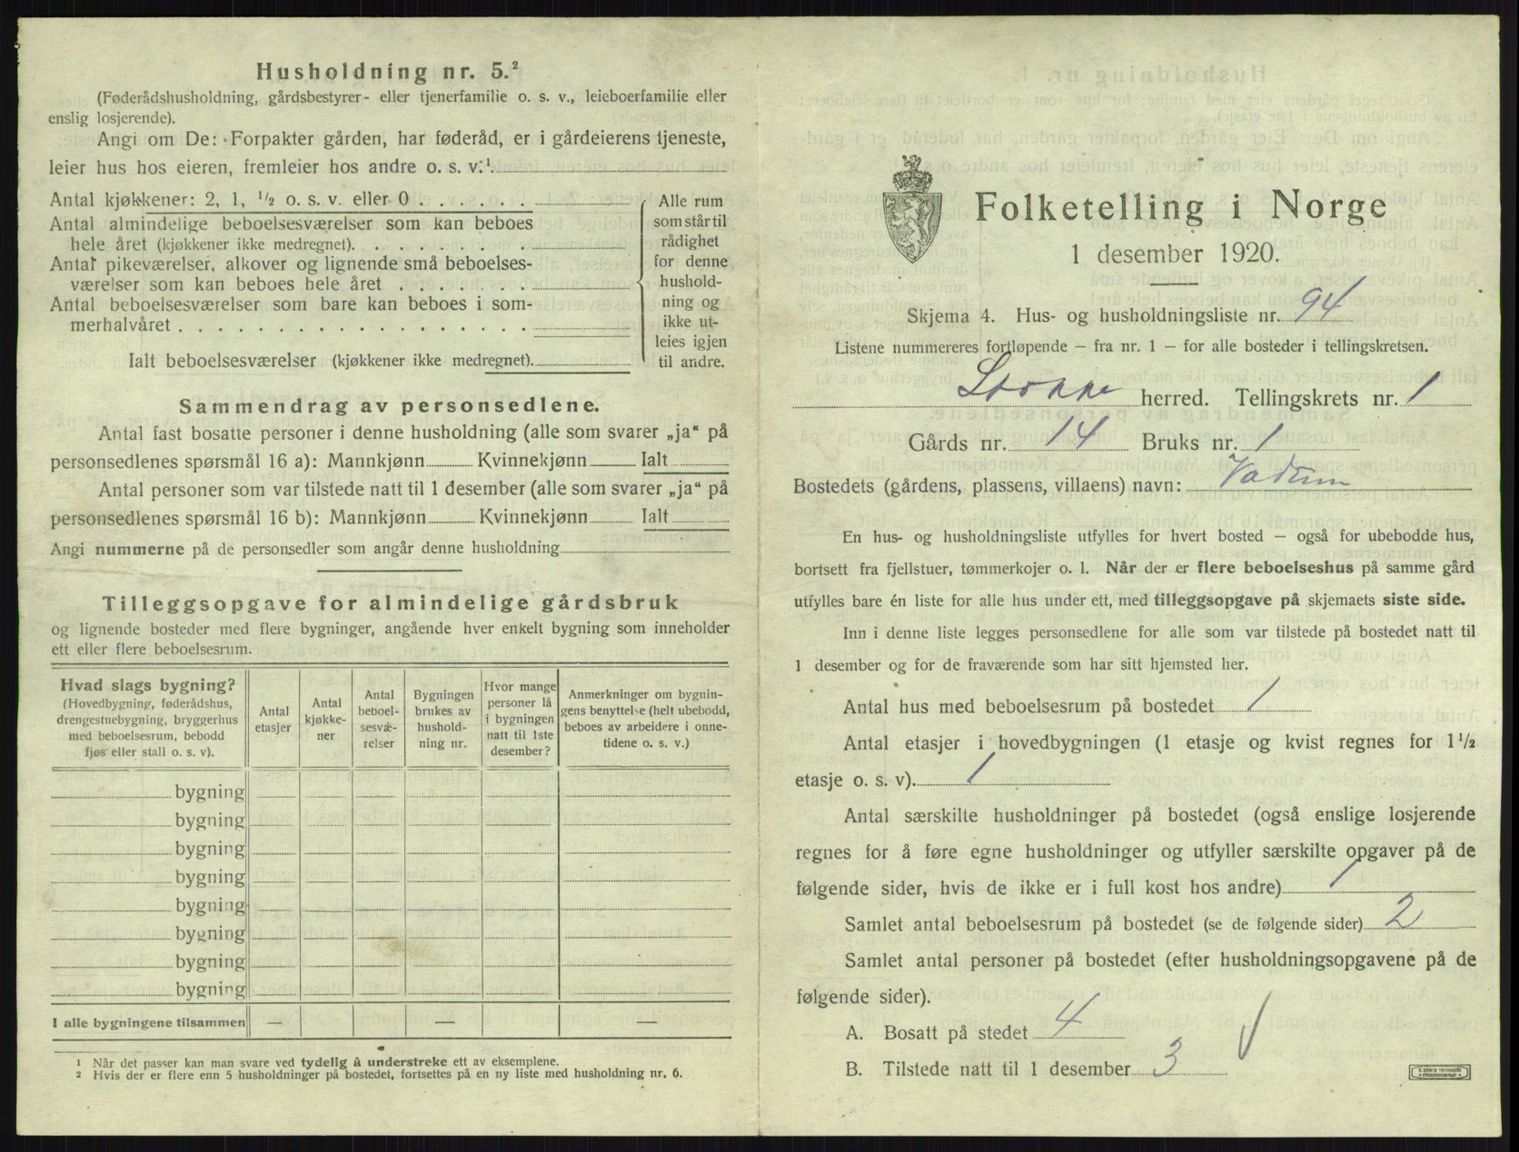 Husholdning nr. 5.²
(Føderådshusholdning, gårdsbestyrer- eller tjenerfamilie o. s. v., leieboerfamilie eller
enslig losjerende).
Angi om De: Forpakter gården, har føderåd, er i gårdeierens tjeneste,
leier hus hos eieren, fremleier hos andre o. s. v.¹
Antal kjøkkener: 2, 1, ½ o. s. v. eller 0
Antal almindelige beboelsesværelser som kan beboes
hele året (kjøkkener ikke medregnet).
Antal pikeværelser, alkover og lignende små beboelses-
værelser som kan beboes hele året
Antal beboelsesværelser som bare kan beboes i som-
merhalvåret
Ialt beboelsesværelser (kjøkkener ikke medregnet).
Alle rum
som står til
rådighet
for denne
hushold-
ning og
ikke ut-
leies igjen
til andre.
Sammendrag av personsedlene.
Antal fast bosatte personer i denne husholdning (alle som svarer „ja“ på
personsedlenes spørsmål 16 a): Mannkjønn Kvinnekjønn Ialt
Antal personer som var tilstede natt til 1 desember (alle som svarer „ja“ på
personsedlenes spørsmål 16 b): Mannkjønn Kvinnekjønn Ialt
Angi nummerne på de personsedler som angår denne husholdning
Tilleggsopgave for almindelige gårdsbruk
og lignende bosteder med flere bygninger, angående hver enkelt bygning som inneholder
ett eller flere beboelsesrum.
Hvad slags bygning?
(Hovedbygning, føderådshus,
drengestuebygning, bryggerhus
med beboelsesrum, bebodd
fjøs eller stall o. s. v).
Antal
etasjer
Antal
kjøkke-
ner
Antal
beboel-
sesvæ-
relser
Bygningen
brukes av
hushold-
ning nr.
Hvor mange
personer lå
i bygningen
natt til 1ste
desember?
Anmerkninger om bygnin-
gens benyttelse (helt ubebodd,
beboes av arbeidere i onne-
tidene o. s. v.)
bygning
bygning
bygning
bygning
bygning
bygning
bygning
bygning
I alle bygningene tilsammen — — —
¹ Når det passer kan man svare ved tydelig å understreke ett av eksemplene.
² Hvis der er flere enn 5 husholdninger på bostedet, fortsettes på en ny liste med husholdning nr. 6.
Folketelling i Norge
1 desember 1920.
Skjema 4. Hus- og husholdningsliste nr. 94
Listene nummereres fortløpende — fra nr. 1 — for alle bosteder i tellingskretsen.
Stokke herred. Tellingskrets nr. 1
Gårds nr. 14 Bruks nr. 1
Bostedets (gårdens, plassens, villaens) navn: Vadum
En hus- og husholdningsliste utfylles for hvert bosted — også for ubebodde hus,
bortsett fra fjellstuer, tømmerkojer o. l. Når der er flere beboelseshus på samme gård
utfylles bare én liste for alle hus under ett, med tilleggsopgave på skjemaets siste side.
Inn i denne liste legges personsedlene for alle som var tilstede på bostedet natt til
1 desember og for de fraværende som har sitt hjemsted her.
Antal hus med beboelsesrum på bostedet 1
Antal etasjer i hovedbygningen (1 etasje og kvist regnes for 1½
etasje o. s. v). 1
Antal særskilte husholdninger på bostedet (også enslige losjerende
regnes for å føre egne husholdninger og utfyller særskilte opgaver på de
følgende sider, hvis de ikke er i full kost hos andre) 1
Samlet antal beboelsesrum på bostedet (se de følgende sider) 2
Samlet antal personer på bostedet (efter husholdningsopgavene på de
følgende sider).
A. Bosatt på stedet 4
B. Tilstede natt til 1 desember 3